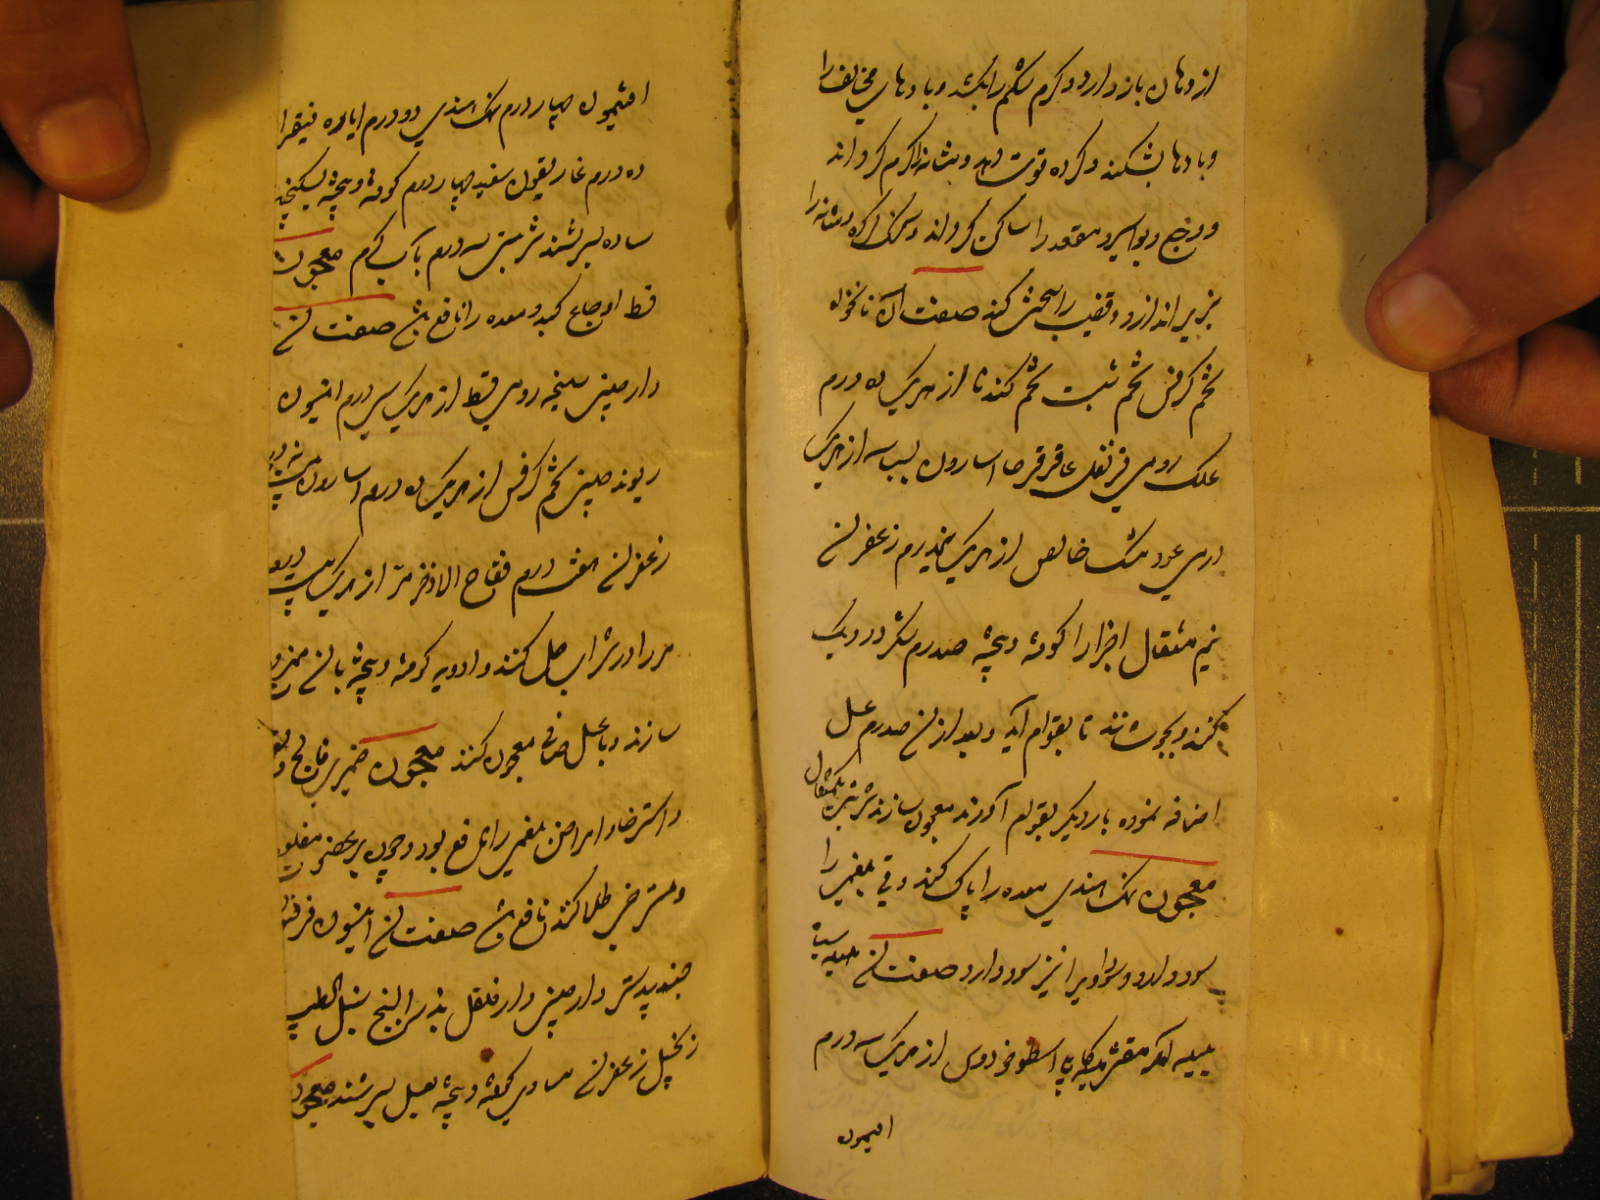 از دهان باز دارد و کرم شکم را بکشد و بادهای مخالف را
و بادها بشکند و کرده قوت دهد و مثانه را کرم کرداند
و وجع و بواسیر و مقعد را ساکن کرداند و سنک کرده و مثانه را
بزیر اندازد و قضیب را سخت کند صفت آن نانخواه
تخم کرفس تخم شبت تخم کندنا از هریک ده درم
علک رومی قرنفل عاقرقرحا اسارون بسباسه از هریک
درمی عود مشک خالص از هریک نیمدرم زعفران
نیم مثقال اجزا را کوفته و بیخته صد درم شکر در دیک
کنند و بجوشانند تا بقوام آید و بعد از آن صد درم عسل
اضافه نموده بار دیکر بقوام آورند معجون سازند شربتی یکمثقال
معجون نمک هندی معده را پاک کند و قی بلغمی را
سود دارد و سوداوی را نیز سود دارد صفت آن هلیله سیاه
بلیله آمله مقشر اسطوخودوس از هریک سه درم
افتیمون
افتیمون چهار درم نمک هندی دو درم ایاره فیقرا
ده درم غاریقون سفید چهار درم کوفته و بیخته بسکنجبین
ساده بسرشند شربتی سه درم باب کرم معجون
قسط اوجاع کبد و معده را نافع باشد صفت آن
دارچینی سلیخه رومی قسط از هریک سی درم انیسون
ریوند چینی تخم کرفس از هریک ده درم اسارون
زعفران هفت درم فقاح الاذخر مر از هریک
مر را در شراب حل کنند و ادویه کوفته و بیخته بآن ممزوج
سازند و با عسل صافی معجون کنند معجون فالج و
و استرخا و امراض بلغمی را نافع بود و چون بر عضو مفلوج
و مسترخی طلا کنند نافع باشد صفت آن افیون فرفیون
جندبیدستر دارچینی دارفلفل بذر البنج سنبل الطیب
زنجبیل زعفران مساوی کوفته و بیخته بعسل بسرشند معجون